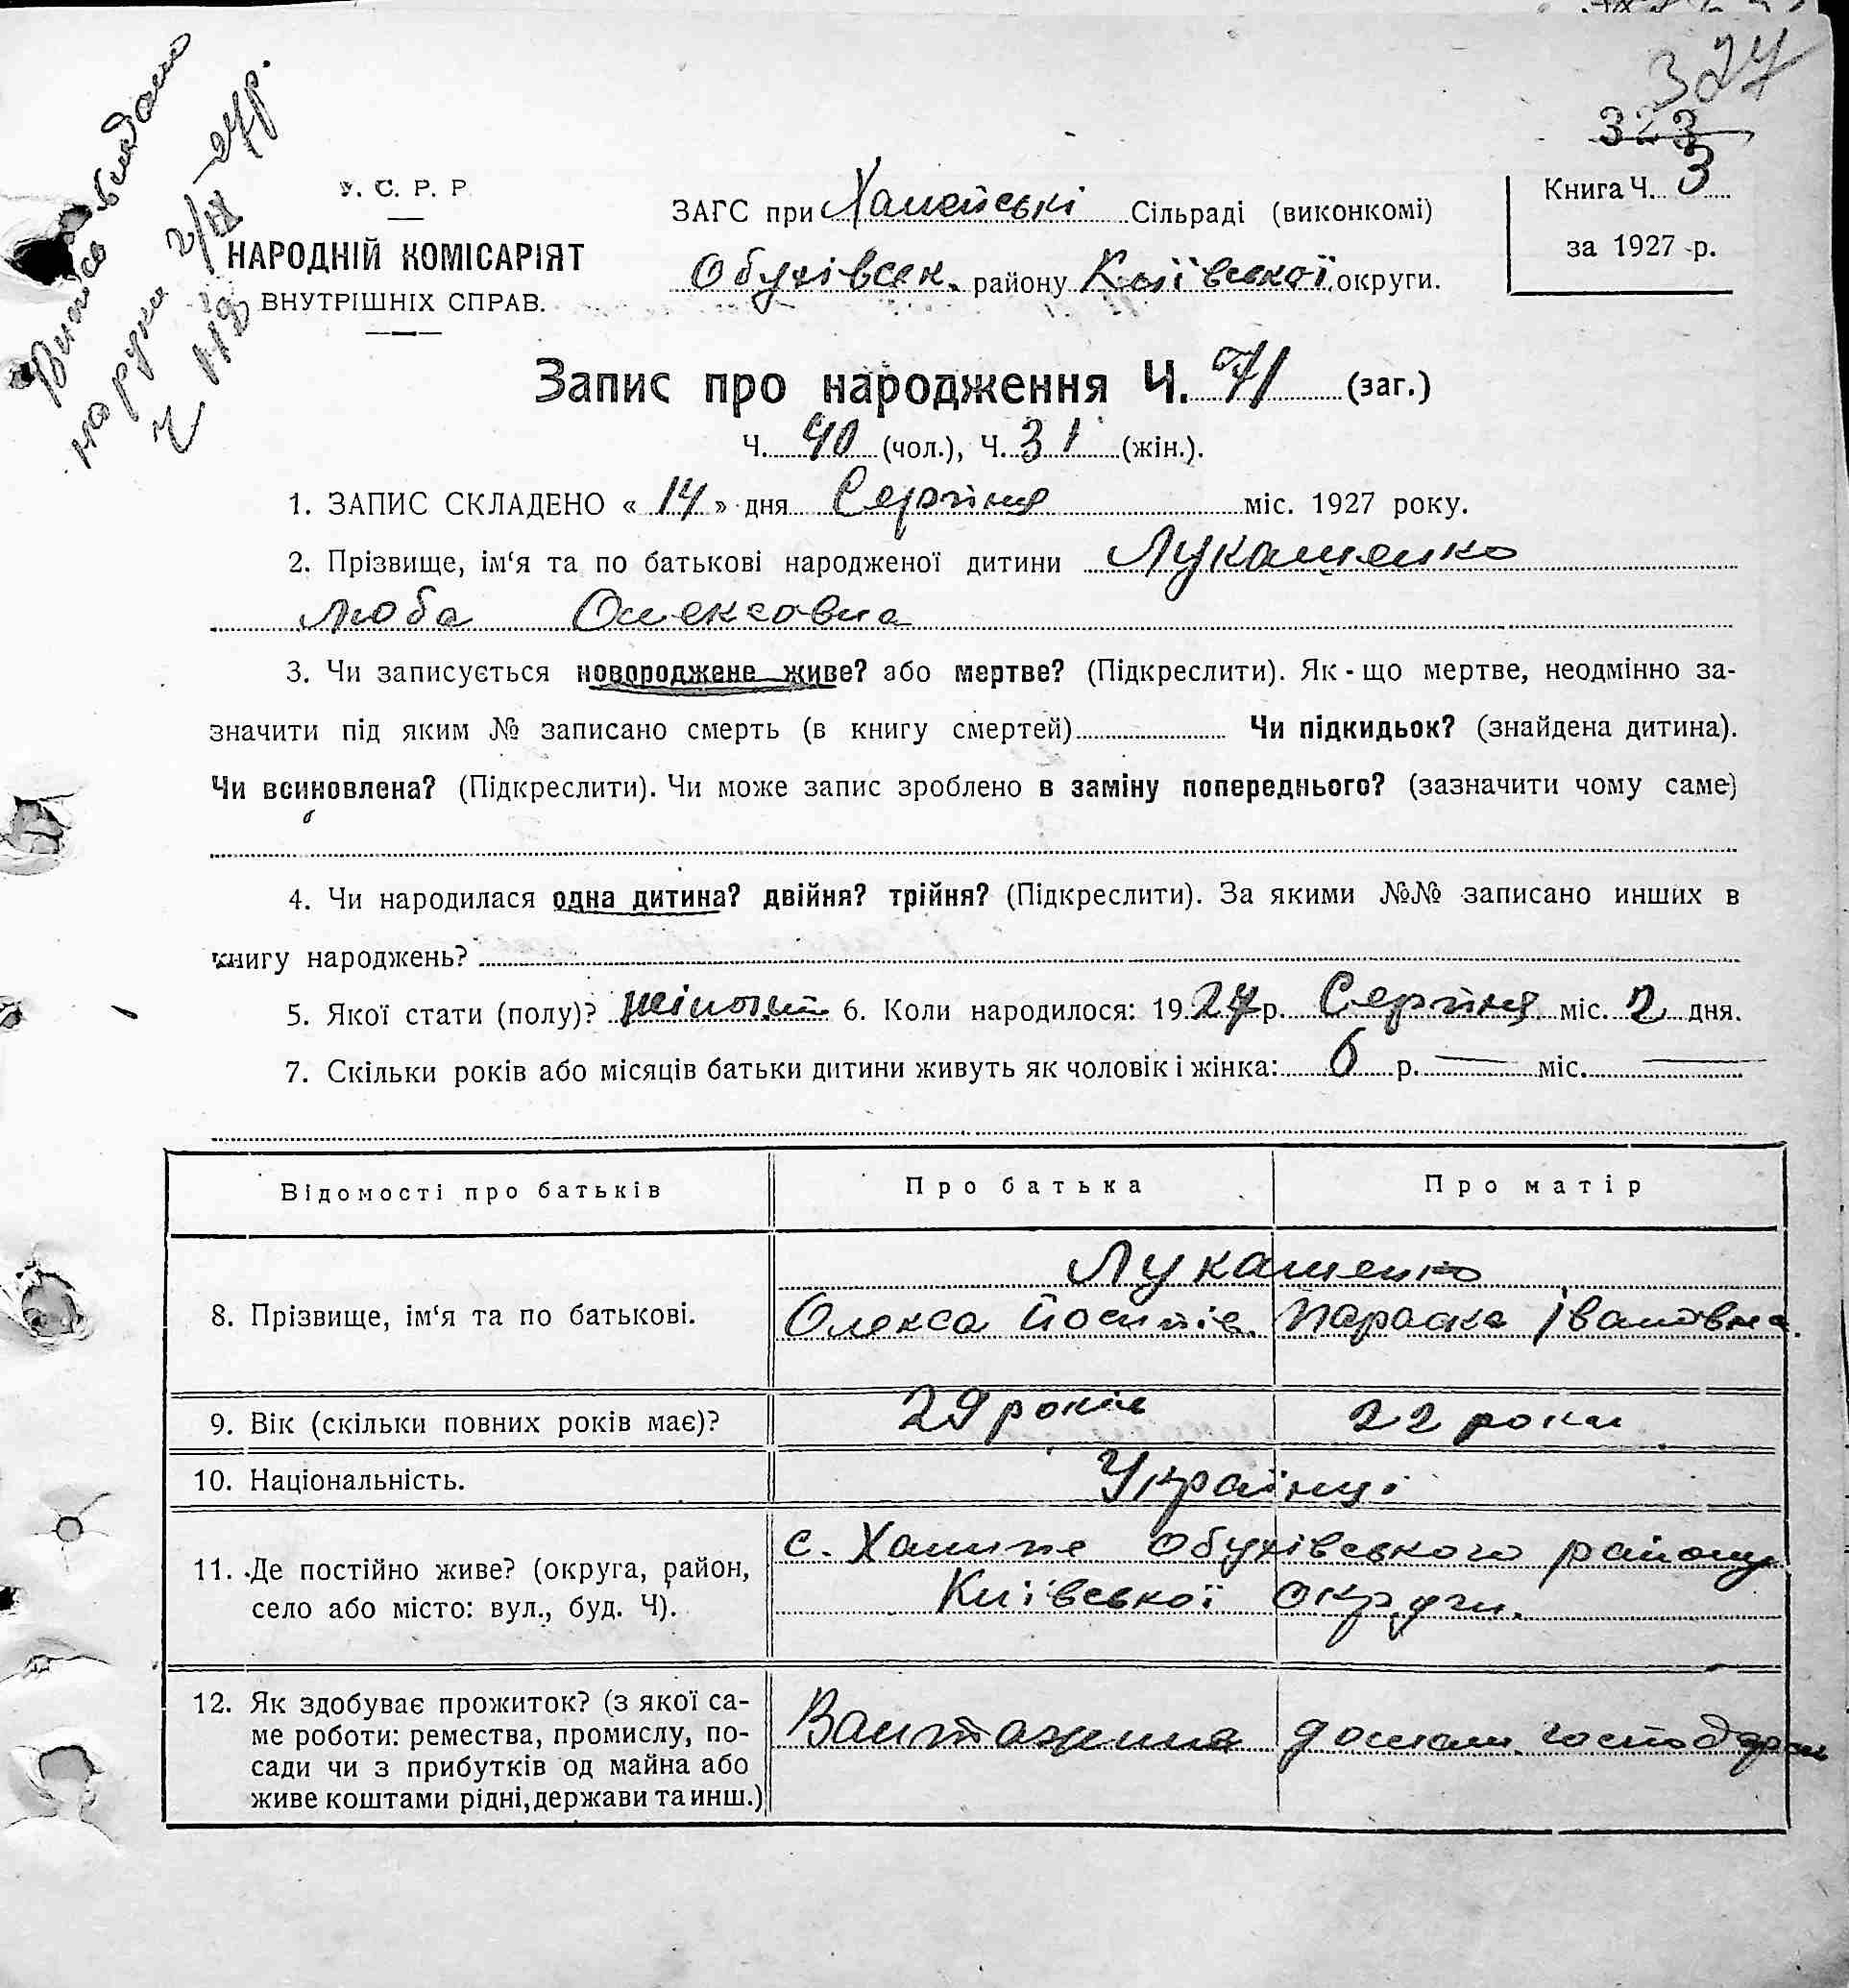 327
323
Випис видано
на руки 2/IX-27р.
Ч 113
У. С. Р. Р.
НАРОДНІЙ КОМІСАРІЯТ
ВНУТРІШНІХ СПРАВ.
ЗАГС при Сільраді (виконкомі)
Обухівськ. району Київської округи.
Книга Ч. 3
за 1927 р.
Запис про народження Ч. 71 (заг.)
Ч. 40 (чол.), Ч. 31 (жін.).
1. ЗАПИС СКЛАДЕНО « 14 » дня Серпня міс. 1927 року.
2. Прізвище, ім‘я та по батькові народженої дитини Лукашенко
Люба Олексовна
3. Чи записується новороджене живе? або мертве? (Підкреслити). Як-що мертве, неодмінно за-
значити під яким № записано смерть (в книгу смертей) Чи підкидьок? (знайдена дитина).
Чи всиновлена? (Підкреслити). Чи може запис зроблено в заміну попереднього? (зазначити чому саме)
4. Чи народилася одна дитина? двійня? трійня? (Підкреслити). За якими №№ записано инших в
книгу народжень?
5. Якої стати (полу)? 6. Коли народилося: 1927 р. Серпня міс. 2 дня.
7. Скільки років або місяців батьки дитини живуть як чоловік і жінка: 6 р. — міс. —
Відомості про батьків Про батька Про матір
Лукашенко
8. Прізвище, ім‘я та по батькові. Олекса Йосипів. Параска Івановна.
9. Вік (скільки повних років має)? 29 років 22 роки
10. Національність. Українці
11. Де постійно живе? (округа, район, село або місто: вул., буд. Ч). с. Халипе Обухівського району
Київської округи.
12. Як здобуває прожиток? (з якої са-
ме роботи: ремества, промислу, по-
сади чи з прибутків од майна або
живе коштами рідні, держави та инш.)